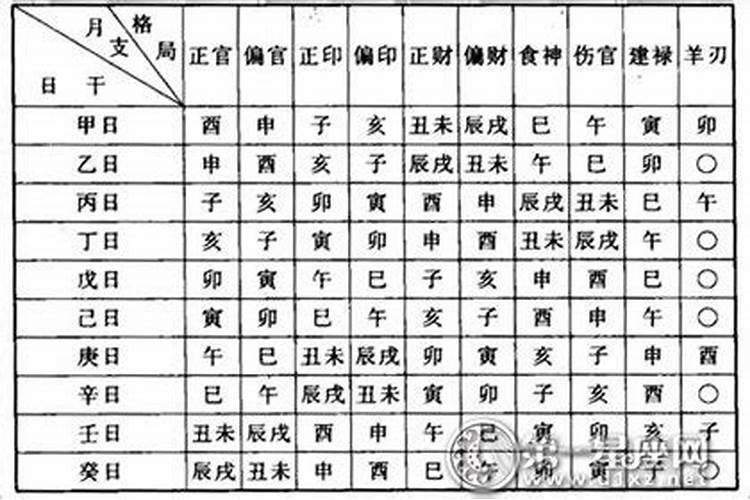 月 支 格 局 日 干 正官 偏官 正印 偏印 正财 偏财 食神 伤官 建禄 羊刃
甲日 酉 申 子 亥 丑未 辰戌 巳 午 寅 卯
乙日 申 酉 亥 子 辰戌 丑未 午 巳 卯 〇
丙日 子 亥 卯 寅 酉 申 辰戌 丑未 巳 午
丁日 亥 子 寅 卯 申 酉 丑未 辰戌 午 〇
戊日 卯 寅 午 巳 子 亥 申 酉 巳 〇
己日 寅 卯 巳 午 亥 子 酉 申 午 〇
庚日 午 巳 丑未 辰戌 卯 寅 亥 子 申 酉
辛日 巳 午 辰戌 丑未 寅 卯 子 亥 酉 〇
壬日 丑未 辰戌 酉 申 午 巳 寅 卯 亥 子
癸日 辰戌 丑未 申 酉 巳 午 卯 寅 子 〇
第一星座网
www.d1xz.net